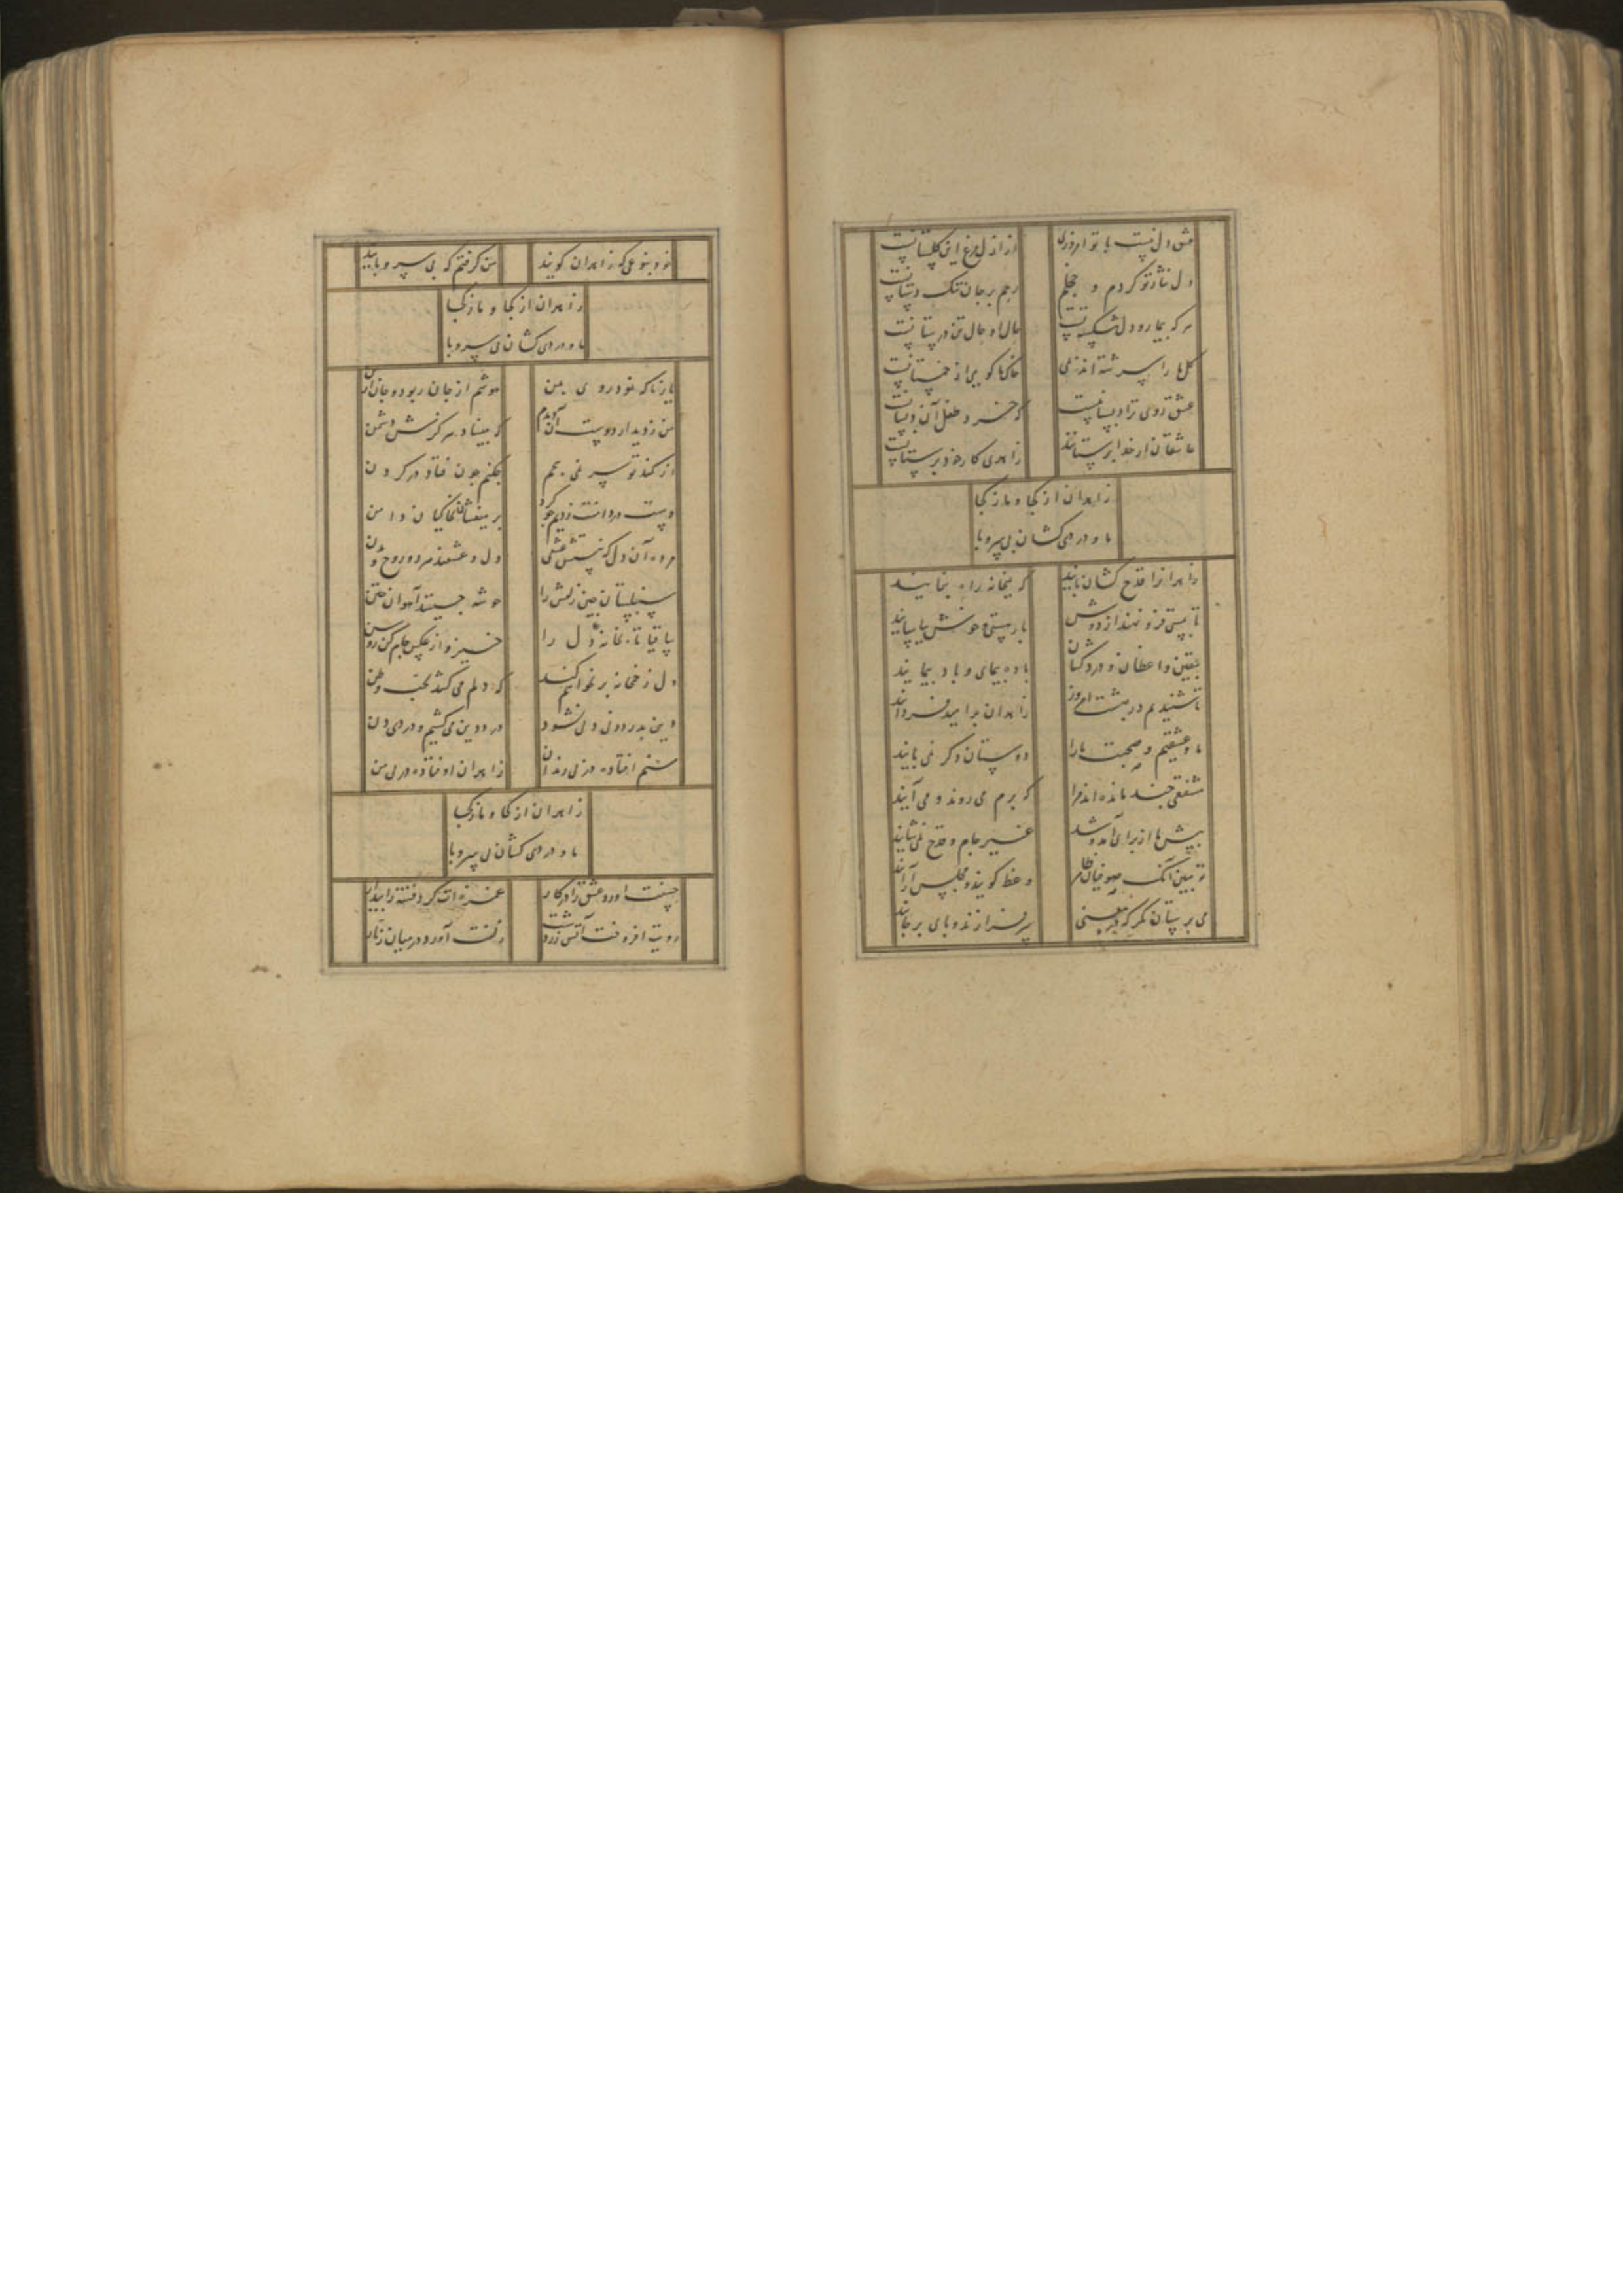 عشق دل نیست با تو امروزی
از ازل مرغ این گلستانست
دل نثار تو کردم و خجلم
رحم بر جان تنک دستانست
هر که بیمار و دل شکسته تست
حال او حال تن درستانست
گل ما را سرشته اند ز می
خاک ما کویی از خمستانست
عشق روی ترا دبستانیست
که خرد طفل آن دبستانست
عاشقان از خدا پرستانند
زاهدی کار خود پرستانست
زاهدان از کجا و ما ز کجا
ما و دردی کشان بی سر و پا
زاهدان را قدح کشان باید
که بمیخانه راه بنمایند
تا بپستی فرو نهند از دوش
بار هستی و خوش بیاسایند
بیقین واعظان و دردکشان
باده پیمای و باد پیمایند
تا شنیدیم در بهشت امروز
زاهدان بر امید فردااند
ما و عشقیم و صحبت ما را
دوستان دکر نمی بایند
مشفقی چند مانده اند مرا
که برم می روند و می آیند
پیش ما از برای آمد و شد
غیر جام و قدح نمی شایند
تو ببین آنک صوفیان ظاهر
وعظ کویند و مجلس آرایند
می پرستان نکر که در معنی
سرفرازند و پای برجایند
تو و بنوعی که زاهدان کویند
من کرفتم که بی سر و پایند
زاهدان از کجا و ما ز کجا
ما و دردی کشان بی سر و پا
یار تا کرد رو بروی من
هوشم از جان ربود و جان از تن
من ز دیدار دوست آن دیدم
که مبیناد هرکزش دشمن
از کمند تو سر نمی پیچم
چکنم چون فتاد در کردن
دست در دامنت زدیم چو کرد
بر میفشان بخاکیان دامن
مرده آن دل که نیستش عشقی
دل و عشقند مرده روح و بدن
سنبلستان چین زلفش را
خوشه چینند آهوان ختن
ساقیا تابخانه دل را
خیز و از عکس جام کن روشن
دل ز خمخانه بر نخواهم کند
که دلم می کشد بحب وطن
دین بدر دونی و لی نشود
درد دین می کشیم و دردی دن
منم افتاده در پی رندان
زاهدان اوفتاده در پی من
زاهدان از کجا و ما ز کجا
ما و دردی کشان بی سر و پا
حسنت آورد عشق را در کار
غمزه ات کرد فتنه را بیدار
رویت افروخت آتش زردشت
زلفت آورد در میان زنار